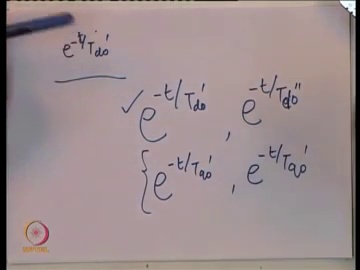 e^{-t/T_{do}'}
e^{-t/T_{do}'} , e^{-t/T_{do}''}
e^{-t/T_{qo}'} , e^{-t/T_{qo}'}